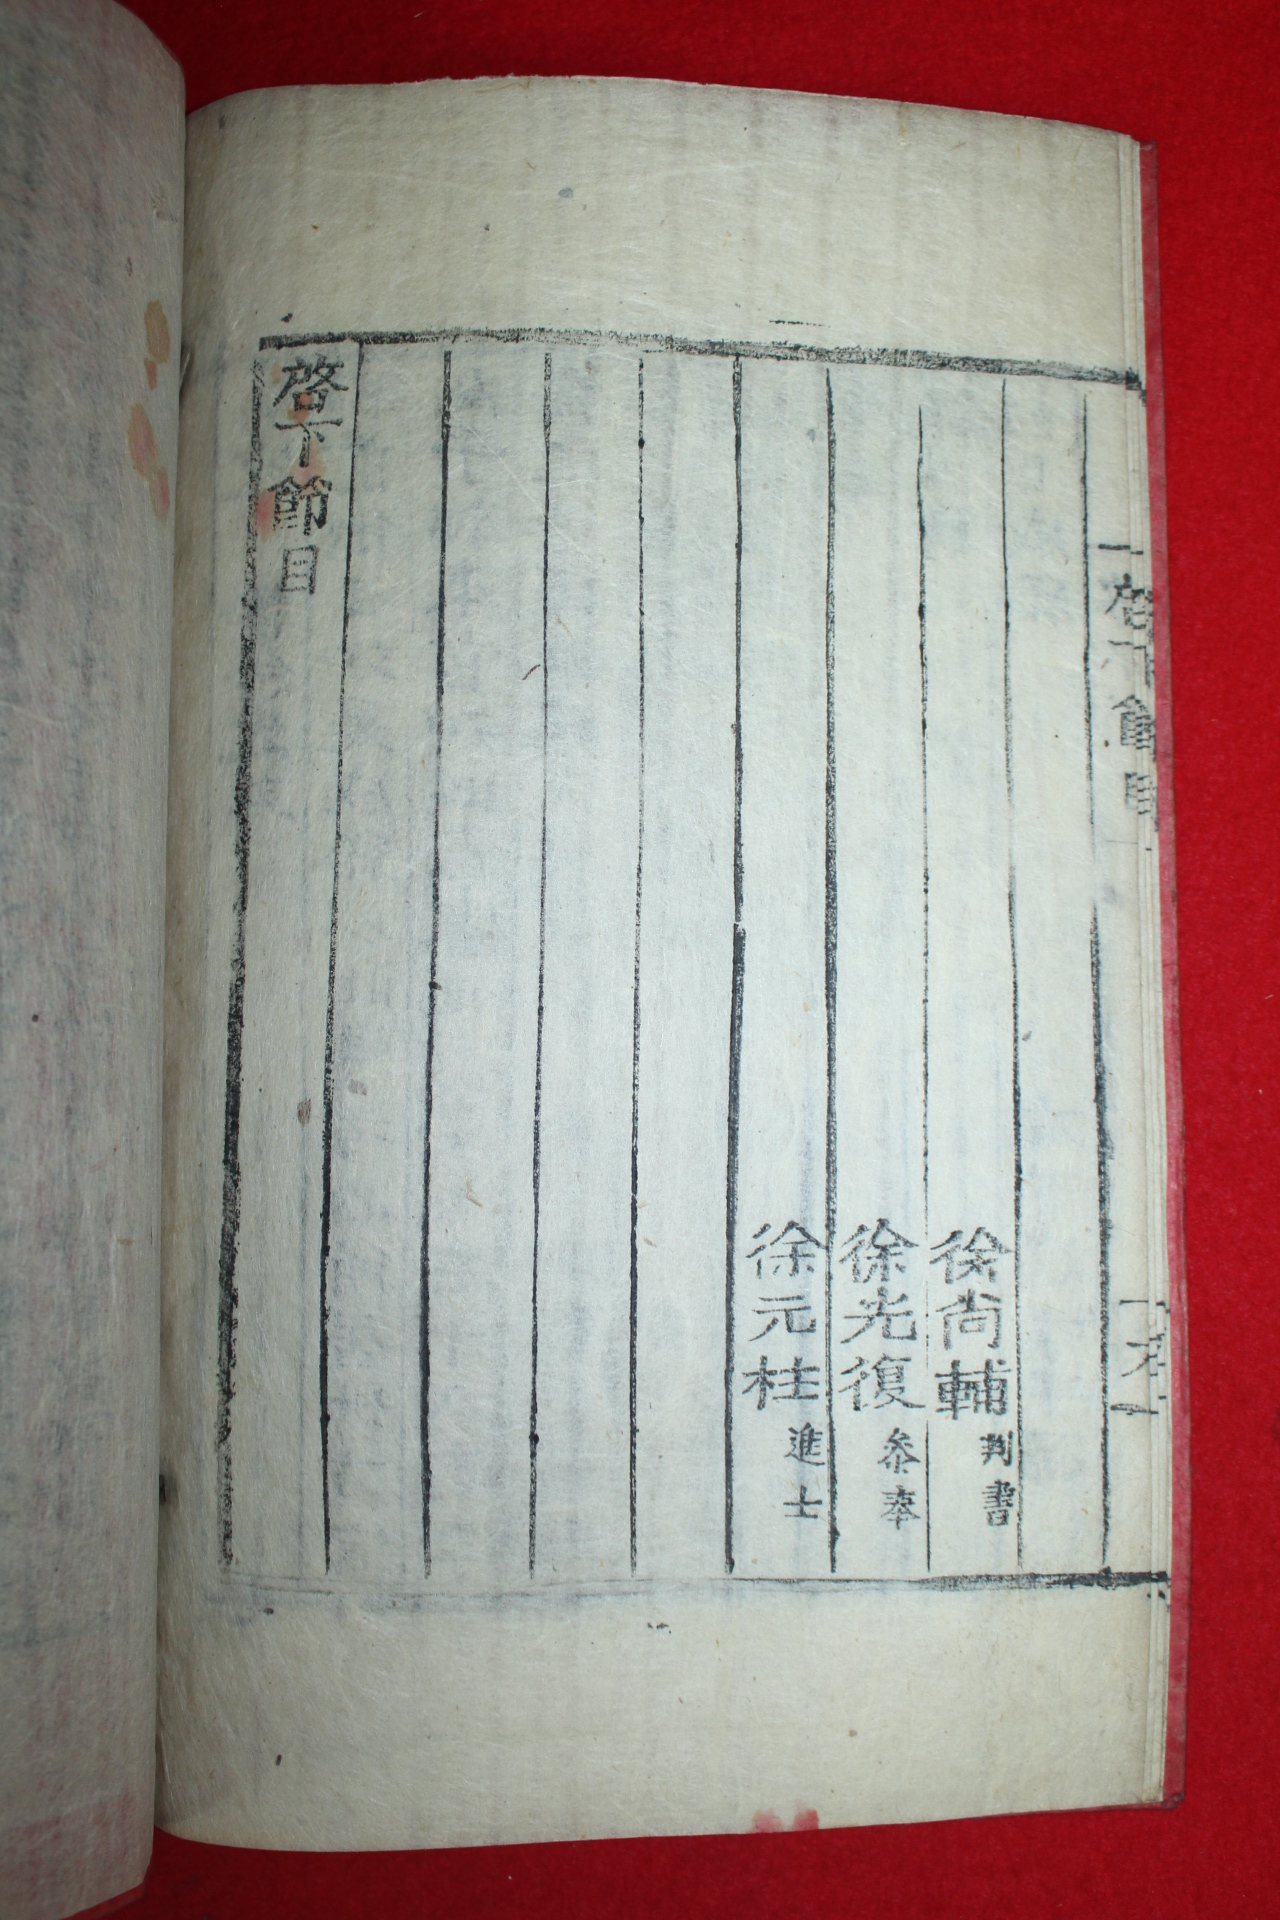 啓下節目
徐尙輔判書
徐光復參奉
徐元柱進士
啓下節目